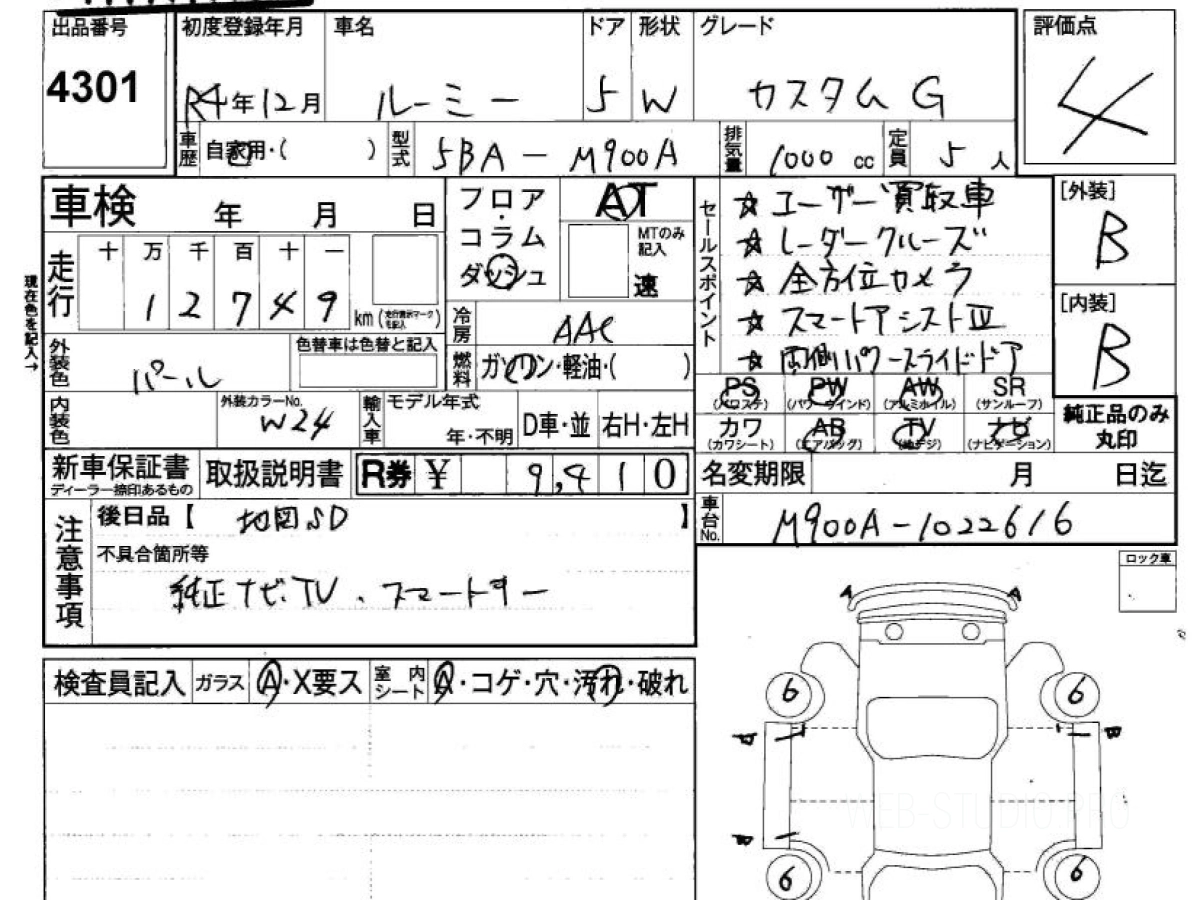 出品番号 初度登録年月 車名 ドア 形状 グレード 評価点
4301 R4年12月 ルーミー 5 W カスタム G 4
車歴 自家用・( ) 型式 5BA-M900A 排気量 1000 cc 定員 5 人
車検 年 月 日
フロア・コラム ダッシュ
AT
MTのみ記入
速
セールスポイント
☆ユーザー買取車
☆レーダークルーズ
☆全方位カメラ
☆スマートアシストⅢ
☆両側パワースライドドア
[外装]
B
[内装]
B
現在色を記入→
走行 十 万 千 百 十 一
1 2 7 4 9 km (走行表示マーク 記入)
冷房 AAC
外装色 パール
色替車は色替と記入
燃料 ガソリン・軽油・( )
PS (パワステ) PW (パワーウインド) AW (アルミホイル) SR (サンルーフ)
カワ (カワシート) AB (エアバッグ) TV (地デジ) ナビ (ナビゲーション)
純正品のみ
丸印
内装色 外装カラーNo. W24
輸入車 モデル年式 年・不明 D車・並 右H・左H
新車保証書 ディーラー捺印あるもの 取扱説明書 R券 ¥ 9,410
名変期限 月 日迄
車台No. M900A-1022616
注意事項
後日品【 地図SD 】
不具合箇所等
純正ナビ.TV、スマートキー
ロック車
検査員記入 ガラス A・X要ス 室内シート A・コゲ・穴・汚れ・破れ
A A
6 6
6 6
WEB-STUDIO.PRO